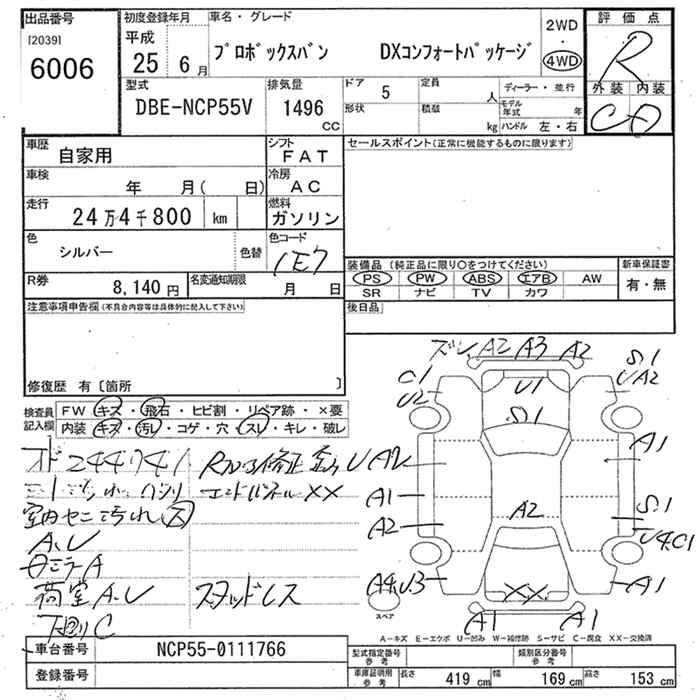 出品番号
[2039]
6006
初度登録年月
平成
25 6月
車名・グレード
プロボックスバン DXコンフォートパッケージ
2WD
・
4WD
評価点
R
外装 内装
C D
型式
DBE-NCP55V
排気量
1496
CC
ドア 5
定員 人
形状
積載 kg
ディーラー・並行
モデル年式 年
ハンドル 左・右
車歴
自家用
シフト
FAT
車検
年 月( 日)
冷房
AC
走行
24万4千800 km
燃料
ガソリン
色
シルバー
色替
色コード
1E7
R券
8,140円
名変通知期限
月 日
セールスポイント(正常に機能するものに限ります)
装備品 (純正品に限り○をつけてください)
新車保証書
PS PW ABS エアB AW
SR ナビ TV カワ
有・無
後日品
注意事項申告欄(不具合内容等は具体的に記入して下さい)
修復歴 有〔箇所 〕
検査員記入欄
FW キズ・飛石・ヒビ割・リペア跡・×要
内装 キズ・汚レ・コゲ・穴・スレ・キレ・破レ
244741
エンドパネルXX
室内
A.U
荷室A.U
スタッドレス
下廻りC
A2 A3 A2
S.1
UA2
C1
U2
U1
S.1
A1
A1
A2
A2
S.1
U4.C1
A4.U3
XX
A1
A1
A1
スペア
A-キズ E-エクボ U-凹み W-補修跡 S-サビ C-腐食 XX-交換済
車台番号
NCP55-0111766
登録番号
型式指定番号
参考
類別区分番号
参考
車庫証明用
参考
長さ 419 cm
幅 169 cm
高さ 153 cm